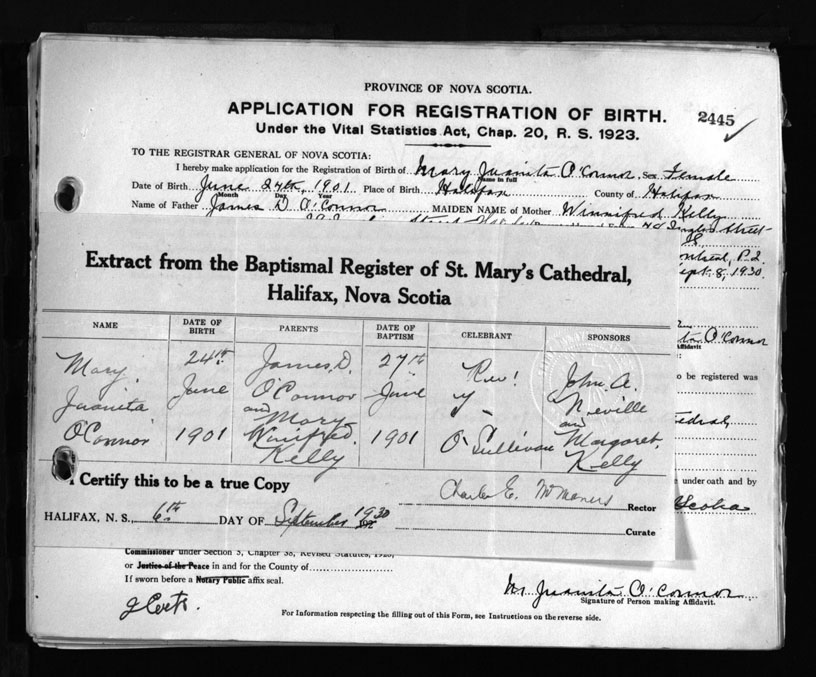 PROVINCE OF NOVA SCOTIA.
APPLICATION FOR REGISTRATION OF BIRTH.
2445
Under the Vital Statistics Act, Chap. 20, R. S. 1923.
TO THE REGISTRAR GENERAL OF NOVA SCOTIA:
I hereby make application for the Registration of Birth of Mary Juanita O'Connor Sex Female
Name in full
Date of Birth June 24th, 1901 Place of Birth Halifax County of Halifax
Month Day Year
Name of Father James D O'Connor MAIDEN NAME of Mother Winnifred Kelly
Street
P.Q.
Sept. 8, 1930
Extract from the Baptismal Register of St. Mary's Cathedral,
Halifax, Nova Scotia
O'Connor
Affidavit
NAME DATE OF BIRTH PARENTS DATE OF BAPTISM CELEBRANT SPONSORS
Mary 24th James D. 27th Rev! John A.
to be registered was
Juanita June O'Connor June Neville
and Mary and
O'Connor 1901 Winifred 1901 O'Sullivan Margaret
Kelly Kelly
under oath and by
I Certify this to be a true Copy
Charles E. McManus Rector
Scotia
HALIFAX, N. S., 6th DAY OF September 1930
Curate
Commissioner under Section 3, Chapter 38, Revised Statutes, 1923,
or Justice of the Peace in and for the County of
If sworn before a Notary Public affix seal.
M. Juanita O'Connor
Signature of Person making Affidavit.
For Information respecting the filling out of this Form, see Instructions on the reverse side.